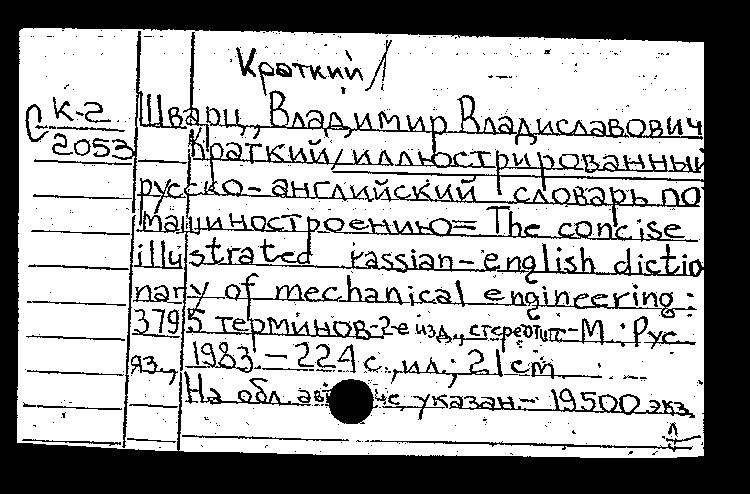 Краткий /
К-2
2053
Шварц, Владимир Владиславович
Краткий/иллюстрированный
русско-английский словарь по
машиностроению= The concise
illustrated rassian-english dictio
nary of mechanical engineering:
3795 терминов-2-е изд., стереотип-М.: Рус
яз., 1983.-224 с., ил.; 21 cm
На обл. авт не указан.- 19500 экз.